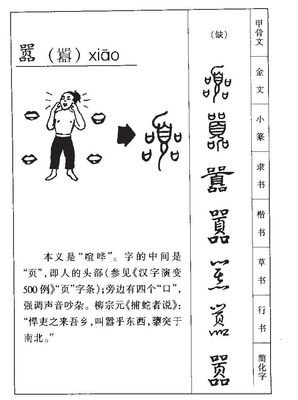 嚣（囂）xiāo
本义是“喧哗”。字的中间是
“页”，即人的头部（参见《汉字演变
500例》“页”字条）；旁边有四个“口”，
强调声音吵杂。柳宗元《捕蛇者说》：
“悍吏之来吾乡，叫嚣乎东西，隳突于
南北。”
（缺）
甲骨文
金文
小篆
囂
隶书
囂
楷书
草书
行书
嚣
简化字